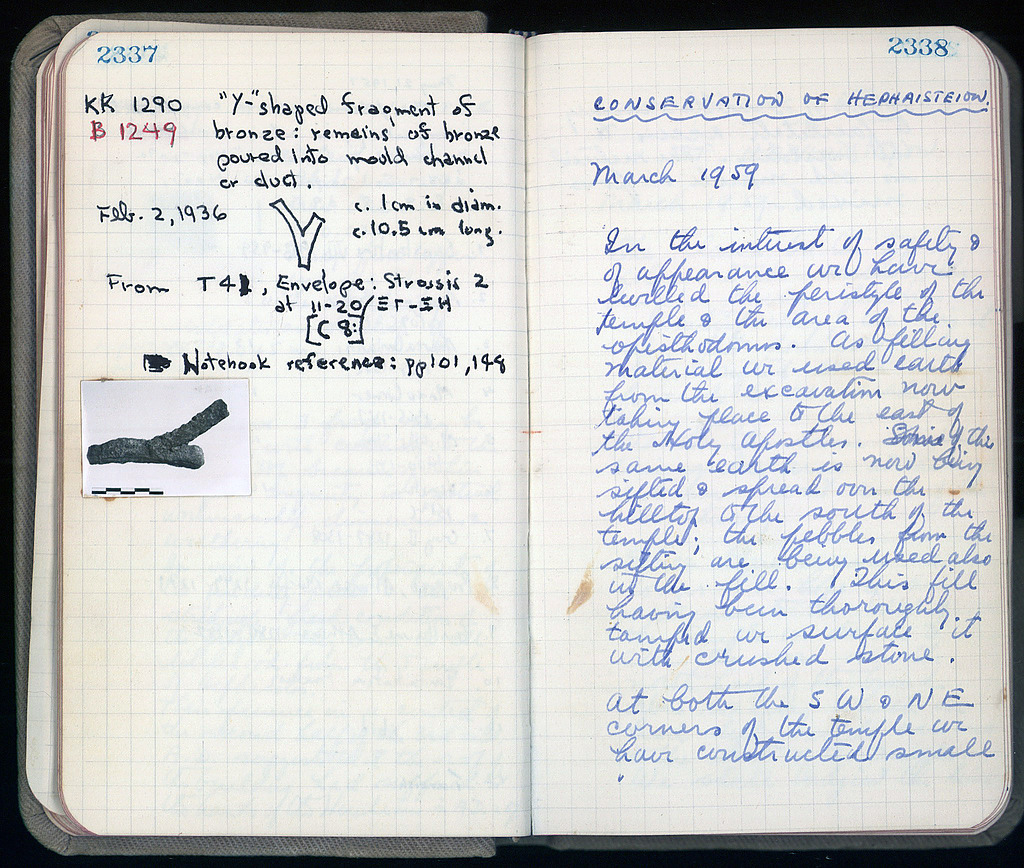 2337
KK 1290 "Y-"shaped fragment of
B 1249 bronze: remains of bronze
poured into mould channel
or duct.
Feb. 2, 1936
c. 1cm in diam.
c. 10.5 cm long.
From T41, Envelope: Strosis 2
at 11-20/ΕΓ-ΞΗ
[C 8:]
Notebook reference: pp101, 148
2338
CONSERVATION OF HEPHAISTEION.
March 1959
In the interest of safety &
of appearance we have
levelled the peristyle of the
temple & the area of the
opisthodomos. As filling
material we used earth
from the excavation now
taking place to the east of
the Holy Apostles. Some of this
same earth is now being
sifted & spread over the
hilltop to the south of the
temple; the pebbles from the
sifting are being used also
in the fill. This fill
having been thoroughly
tamped we surface it
with crushed stone.
At both the S W & N E
corners of the temple we
have constructed small